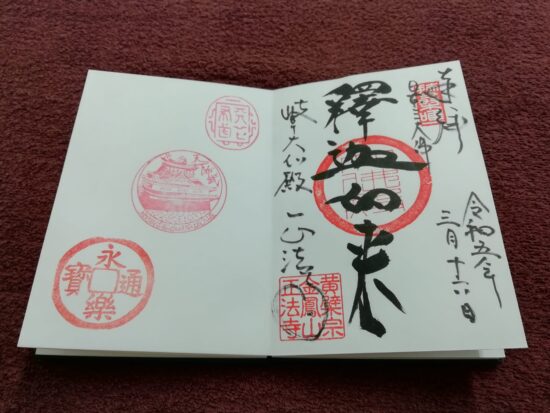 令和五年
三月十六日
奉拝
釋迦如来
岐阜大仏殿 正法寺
黄檗宗
金鳳山
正法寺
永樂通寶